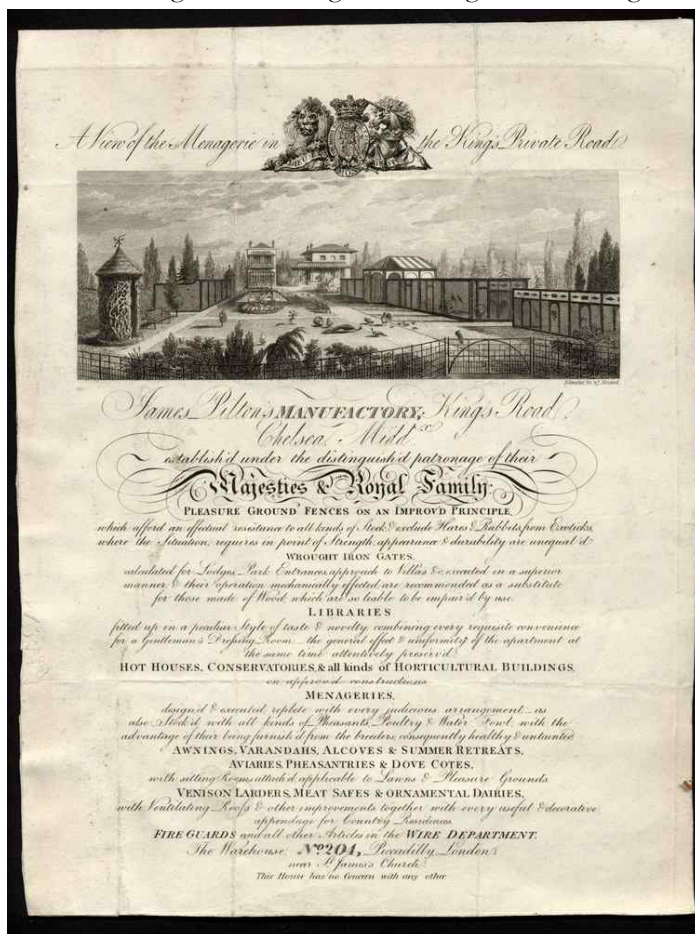 A View of the Menagerie in the King's Private Road
James Pilton's MANUFACTORY, King's Road
Chelsea, Middx
establish'd under the distinguish'd patronage of their
Majesties & Royal Family.
PLEASURE GROUND FENCES ON AN IMPROV'D PRINCIPLE,
which afford an effectual resistance to all kinds of Stock & exclude Hares & Rabbits, from Exoticks,
where the Situation, requires in point of Strength, appearance & durability are unequal'd
WROUGHT IRON GATES,
calculated for Lodges, Park Entrances, approach to Villas &c. executed in a superior
manner, & their operation mechanically effected are recommended as a substitute
for those made of Wood, which are so liable to be impair'd by use.
LIBRARIES
fitted up in a peculiar Style of taste & novelty, combining every requisite convenience
for a Gentleman's Dressing Room the general effect & uniformity of the apartment at
the same time attentively preserv'd
HOT HOUSES, CONSERVATORIES, & all kinds of HORTICULTURAL BUILDINGS,
on approv'd constructions
MENAGERIES,
design'd & executed, replete with every judicious arrangement as
also Stock'd with all kinds of Pheasants, Poultry & Water Fowl, with the
advantage of their being furnish'd from the breeders, consequently healthy & untainted
AWNINGS, VARANDAHS, ALCOVES & SUMMER RETREATS,
AVIARIES, PHEASANTRIES & DOVE COTES,
with sitting Rooms attach'd applicable to Lawns & Pleasure Grounds
VENISON LARDERS, MEAT SAFES & ORNAMENTAL DAIRIES,
with Ventilating Roofs & other improvements together with every useful & decorative
appendage for Country Residences
FIRE GUARDS and all other Articles in the WIRE DEPARTMENT.
The Warehouse, No. 204, Piccadilly, London,
near St James's Church
This House has no Concern with any other